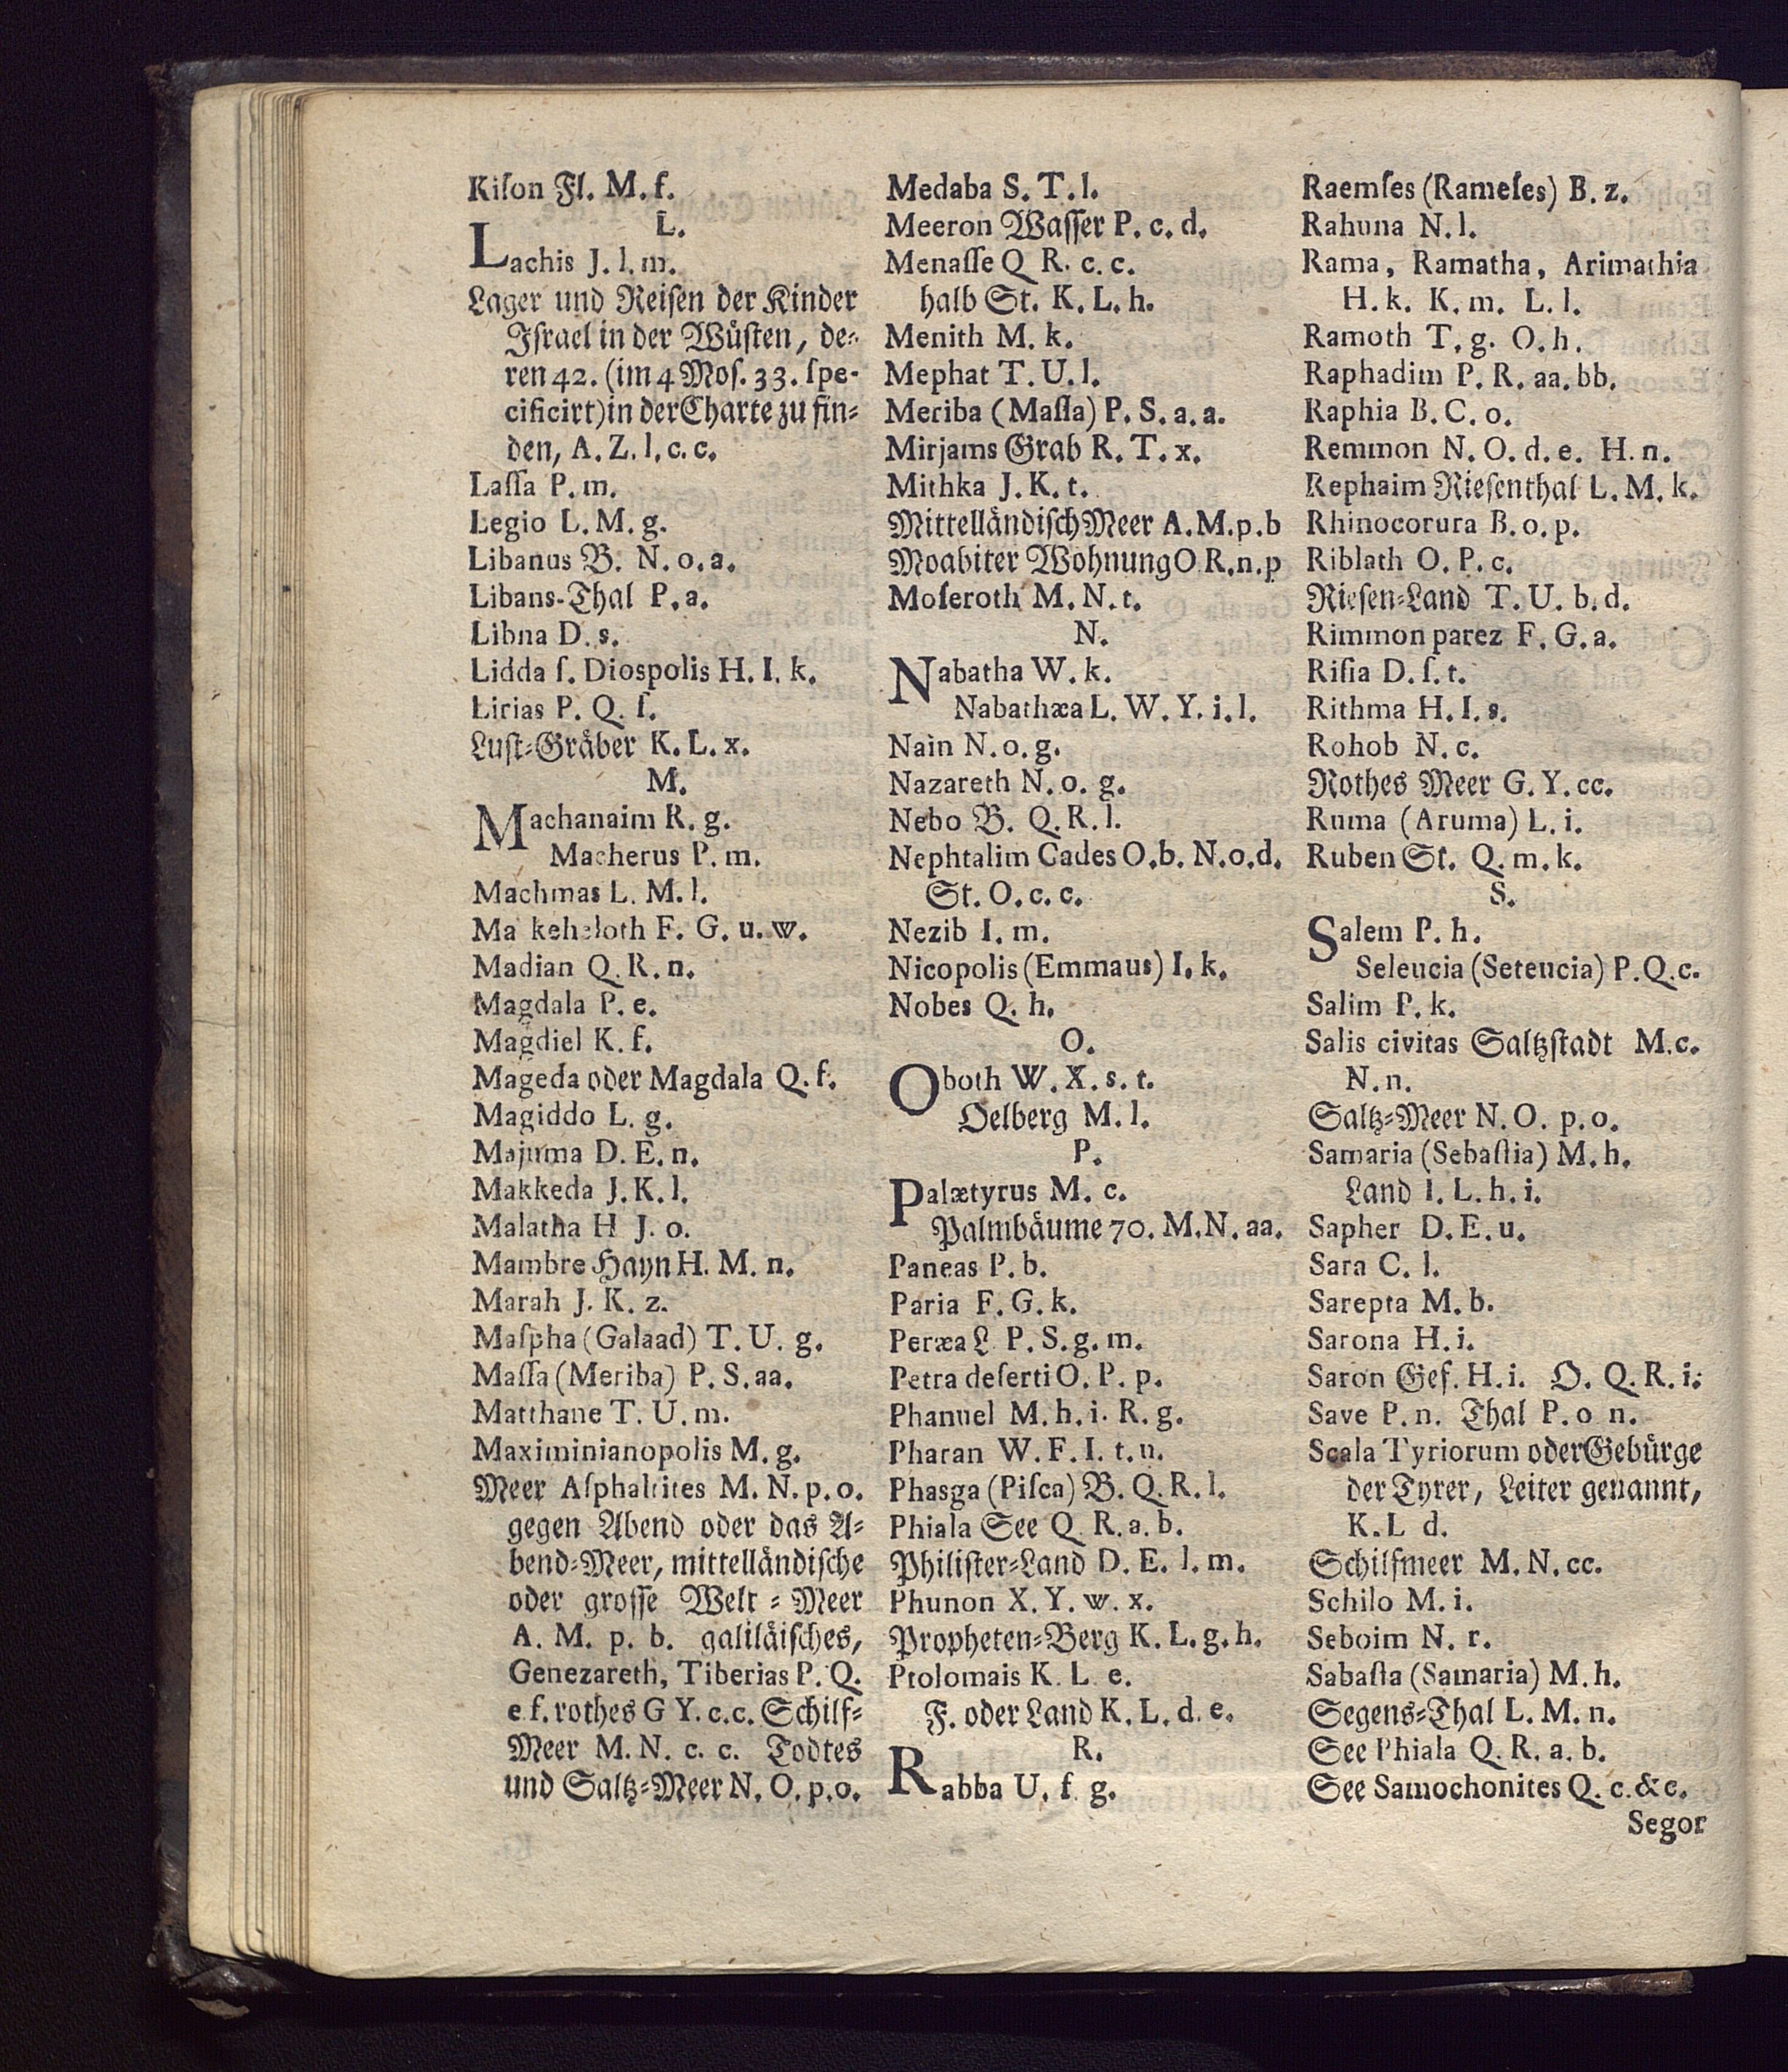 Kiſon Fl. M. f.
L.
Lachis J. l. m.
Lager und Reiſen der Kinder
Iſrael in der Wüſten, de⸗
ren 42. (im 4 Moſ. 33. ſpe-
cificirt) in der Charte zu fin⸗
den, A. Z. l. c. c.
Laſſa P. m.
Legio L. M. g.
Libanus B. N. o. a.
Libans-Thal P. a.
Libna D. s.
Lidda ſ. Diospolis H. I. k.
Lirias P. Q. f.
Luſt⸗Gräber K. L. x.
M.
Machanaim R. g.
Macherus P. m.
Machmas L. M. l.
Ma keheloth F. G. u. w.
Madian Q. R. n.
Magdala P. e.
Magdiel K. f.
Mageda oder Magdala Q. f.
Magiddo L. g.
Majuma D. E. n.
Makkeda J. K. l.
Malatha H J. o.
Mambre Hayn H. M. n.
Marah J. K. z.
Maſpha (Galaad) T. U. g.
Maſſa (Meriba) P. S. aa.
Matthane T. U. m.
Maximinianopolis M. g.
Meer Aſphaltites M. N. p. o.
gegen Abend oder das A⸗
bend⸗Meer, mittelländiſche
oder groſſe Welt ⸗ Meer
A. M. p. b. galiläiſches,
Genezareth, Tiberias P. Q.
e f. rothes G Y. c. c. Schilf⸗
Meer M. N. c. c. Todtes
und Saltz⸗Meer N. O. p. o.
Medaba S. T. l.
Meeron Waſſer P. c. d.
Menaſſe Q R. c. c.
halb St. K. L. h.
Menith M. k.
Mephat T. U. l.
Meriba (Maſſa) P. S. a. a.
Mirjams Grab R. T. x.
Mithka J. K. t.
Mittelländiſch Meer A. M. p. b
Moabiter Wohnung O R. n. p
Moſeroth M. N. t.
N.
Nabatha W. k.
Nabathæa L. W. Y. i. l.
Nain N. o. g.
Nazareth N. o. g.
Nebo B. Q. R. l.
Nephtalim Cades O. b. N. o. d.
St. O. c. c.
Nezib I. m.
Nicopolis (Emmaus) I. k.
Nobes Q. h.
O.
Oboth W. X. s. t.
Oelberg M. l.
P.
Palætyrus M. c.
Palmbäume 70. M. N. aa.
Paneas P. b.
Paria F. G. k.
Peræa L P. S. g. m.
Petra deſerti O. P. p.
Phanuel M. h. i. R. g.
Pharan W. F. I. t. u.
Phasga (Piſca) B. Q. R. l.
Phiala See Q R. a. b.
Philiſter⸗Land D. E. l. m.
Phunon X. Y. w. x.
Propheten⸗Berg K. L. g. h.
Ptolomais K. L e.
F. oder Land K. L. d. e.
R.
Rabba U. f g.
Raemſes (Rameſes) B. z.
Rahuna N. l.
Rama, Ramatha, Arimathia
H. k. K. m. L. l.
Ramoth T. g. O. h.
Raphadim P. R. aa. bb.
Raphia B. C. o.
Remmon N. O. d. e. H. n.
Rephaim Rieſenthal L. M. k.
Rhinocorura B. o. p.
Riblath O. P. c.
Rieſen⸗Land T. U. b. d.
Rimmon parez F. G. a.
Riſia D. ſ. t.
Rithma H. I. s.
Rohob N. c.
Rothes Meer G. Y. cc.
Ruma (Aruma) L. i.
Ruben St. Q. m. k.
S.
Salem P. h.
Seleucia (Seteucia) P. Q. c.
Salim P. k.
Salis civitas Saltzſtadt M. c.
N. n.
Saltz⸗Meer N. O. p. o.
Samaria (Sebaſtia) M. h.
Land I. L. h. i.
Sapher D. E. u.
Sara C. l.
Sarepta M. b.
Sarona H. i.
Saron Geſ. H. i. O. Q. R. i.
Save P. n. Thal P. o n.
Scala Tyriorum oder Gebürge
der Tyrer, Leiter genannt,
K. L d.
Schilfmeer M. N. cc.
Schilo M. i.
Seboim N. r.
Sabaſta (Samaria) M. h.
Segens⸗Thal L. M. n.
See Phiala Q. R. a. b.
See Samochonites Q. c. &c.
Segor